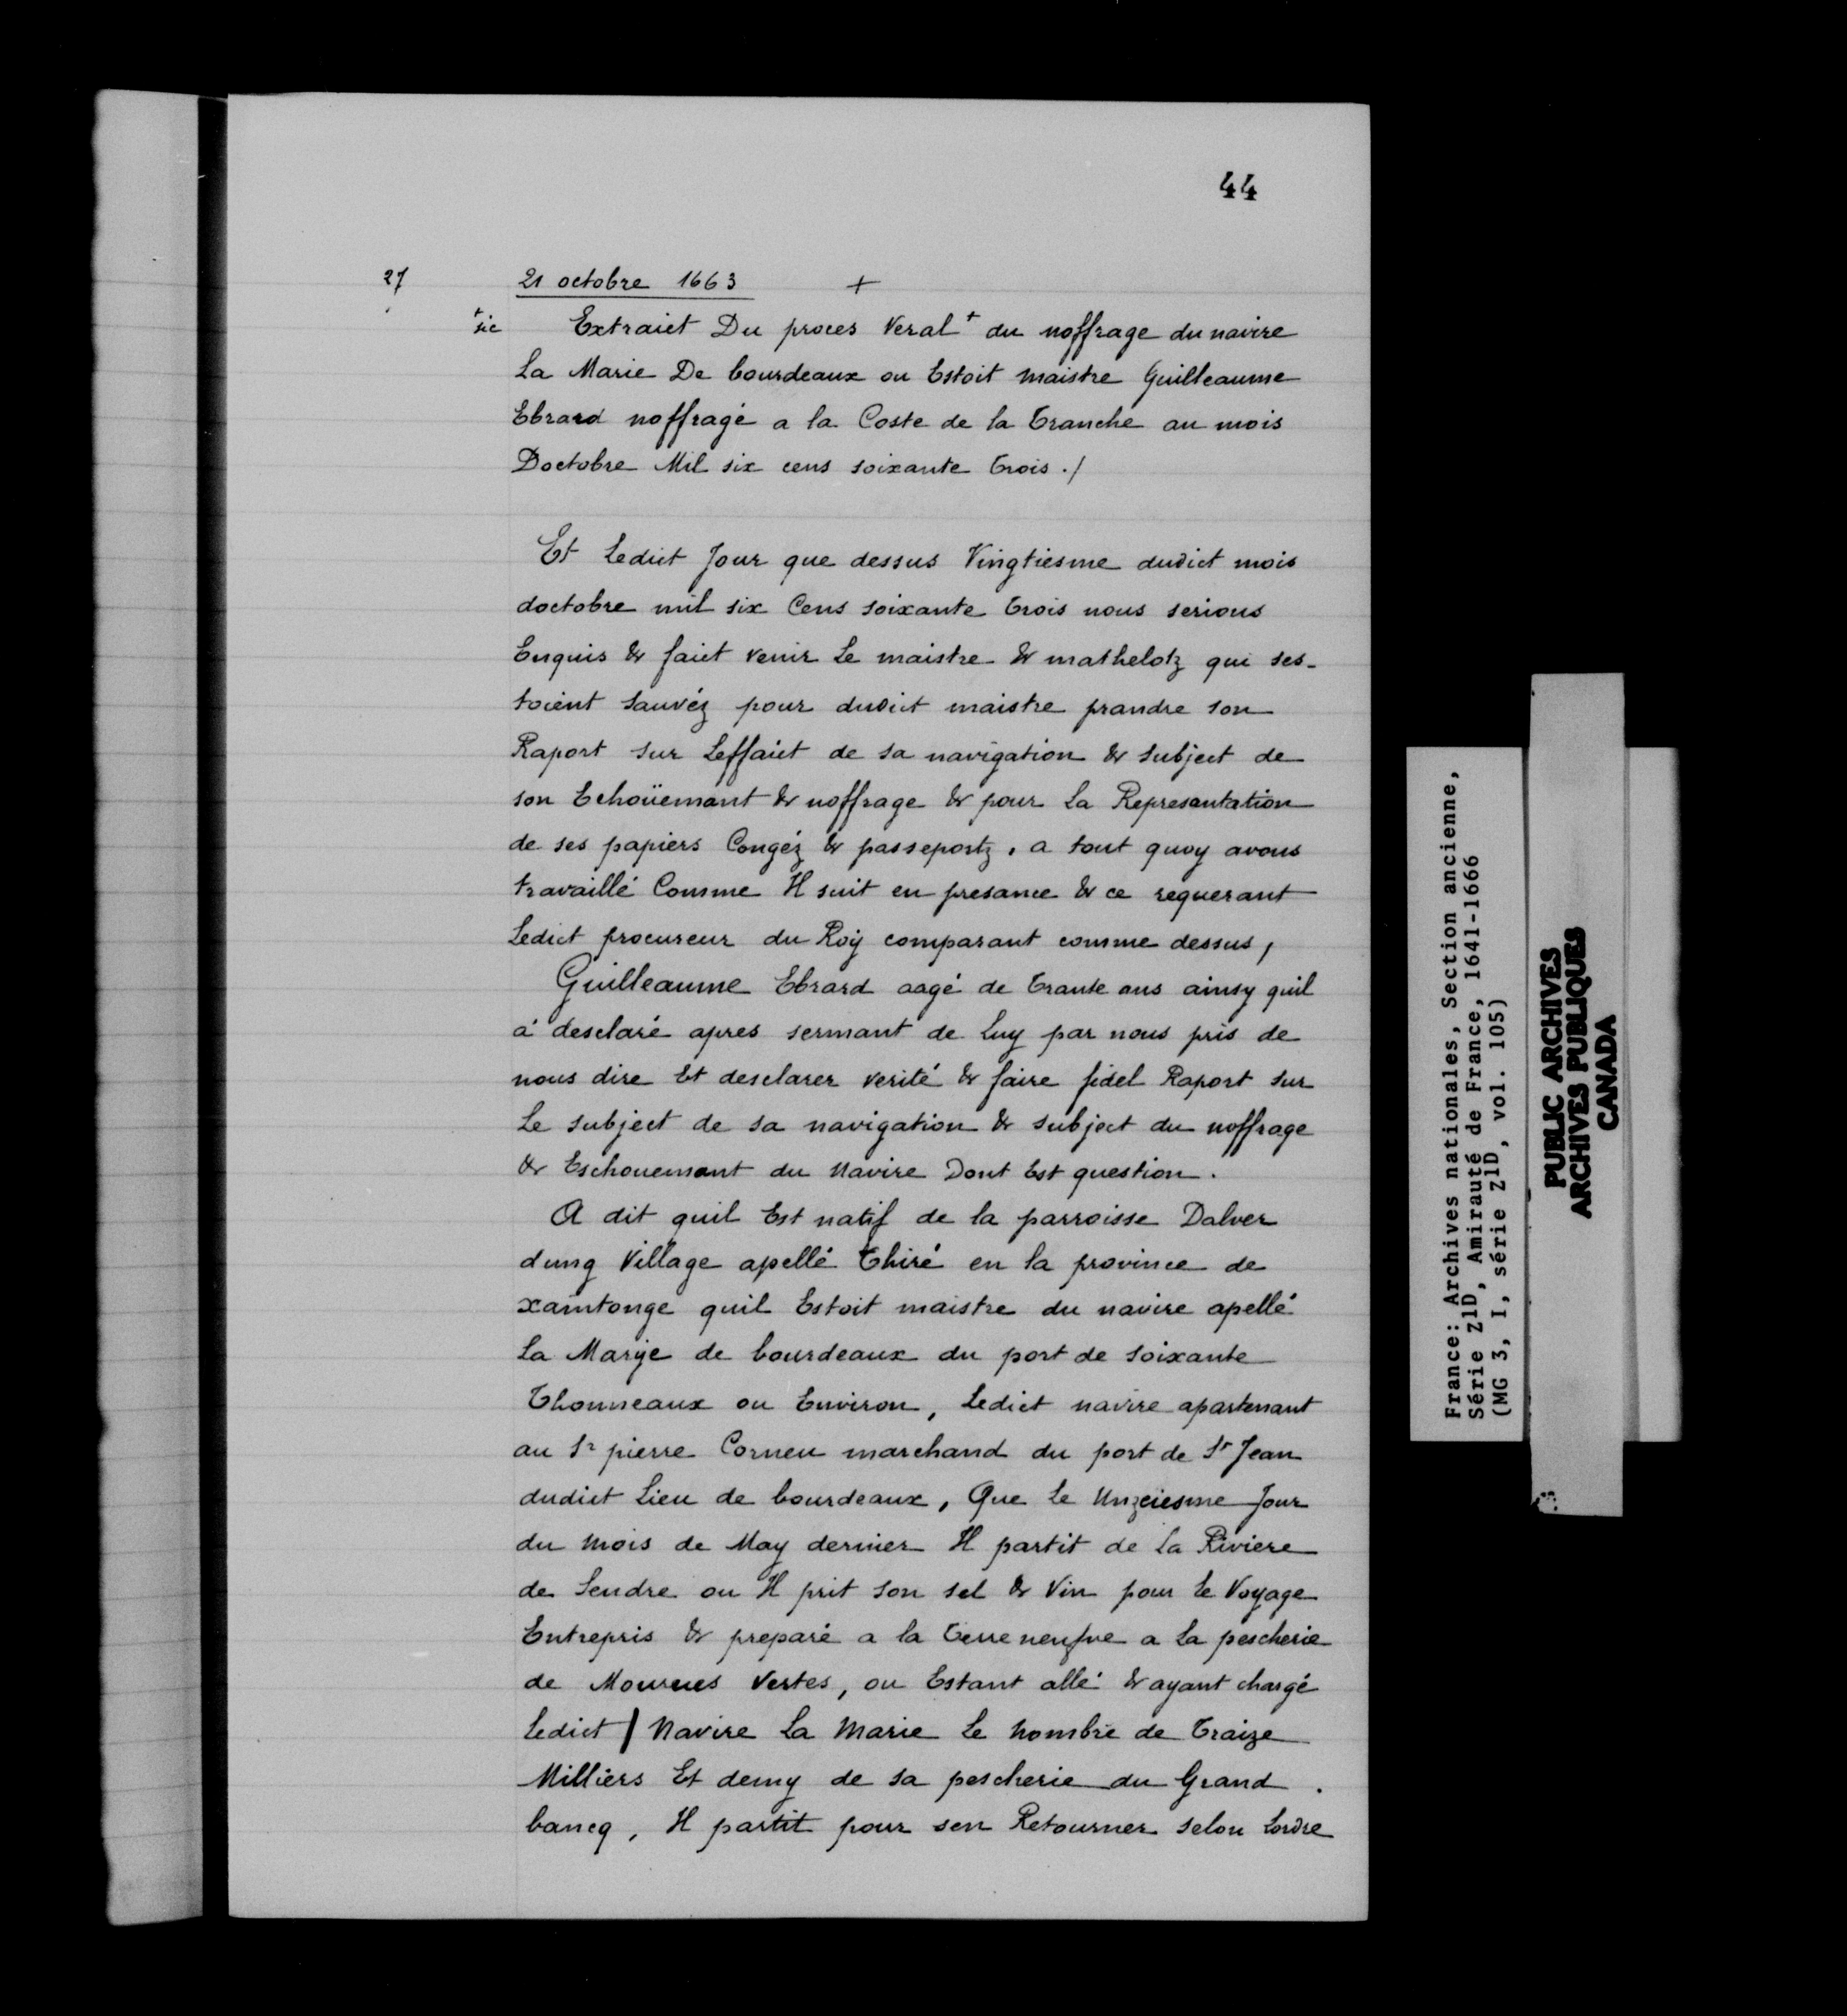 44
27
21 octobre 1663 +
+ sic
Extraict Du proces Veral+ du noffrage du navire
La Marie De bourdeaux ou Estoit maistre Guilleaume
Ebrard noffragé a la Coste de la tranche au mois
Doctobre Mil six cens soixante trois ./
Et Ledict Jour que dessus Vingtiesme dudict mois
doctobre mil six Cens soixante trois nous serions
Enquis & faict venir Le maistre & mathelotz qui ses-
toient sauvéz pour dudict maistre prandre son
Raport sur Leffaict de sa navigation & subject de
son Echoüemant & noffrage & pour La Represantation
de ses papiers Congéz & passeportz, a tout quoy avons
travaillé Comme Il suit en presance & ce requerant
Ledict procureur du Roÿ comparant comme dessus,
Guilleaume Ebrard aagé de trante ans ainsy quil
a desclaré apres sermant de Luy par nous pris de
nous dire Et desclarer verité & faire fidel Raport sur
Le subject de sa navigation & subject du noffrage
& Eschouemant du Navire Dont Est question.
A dit quil Est natif de la parroisse Dalver
dung Village apellé Thiré en la province de
xaintonge quil Estoit maistre du navire apellé
La Marÿe de bourdeaux du port de soixante
Thonneaux ou Environ, Ledict navire apartenant
au Sr pierre Corneu marchand du port de St Jean
dudict Lieu de bourdeaux, Que Le Unzeiesme Jour
du mois de May dernier Il partit de La Riviere
de Sendre ou Il prit son sel & Vin pour Le Voyage
Entrepris & preparé a la terre neufve a La pescherie
de Mourues Vertes, ou Estant allé & ayant chargé
Ledict | Navire La Marie Le Nombre de traize
Milliers Et demy de sa pescherie du Grand
bancq, Il partit pour sen Retourner selon Lordre
France: Archives nationales, Section ancienne,
Série Z1D, Amirauté de France, 1641-1666
(MG 3, I, série Z1D, vol. 105)
PUBLIC ARCHIVES
ARCHIVES PUBLIQUES
CANADA